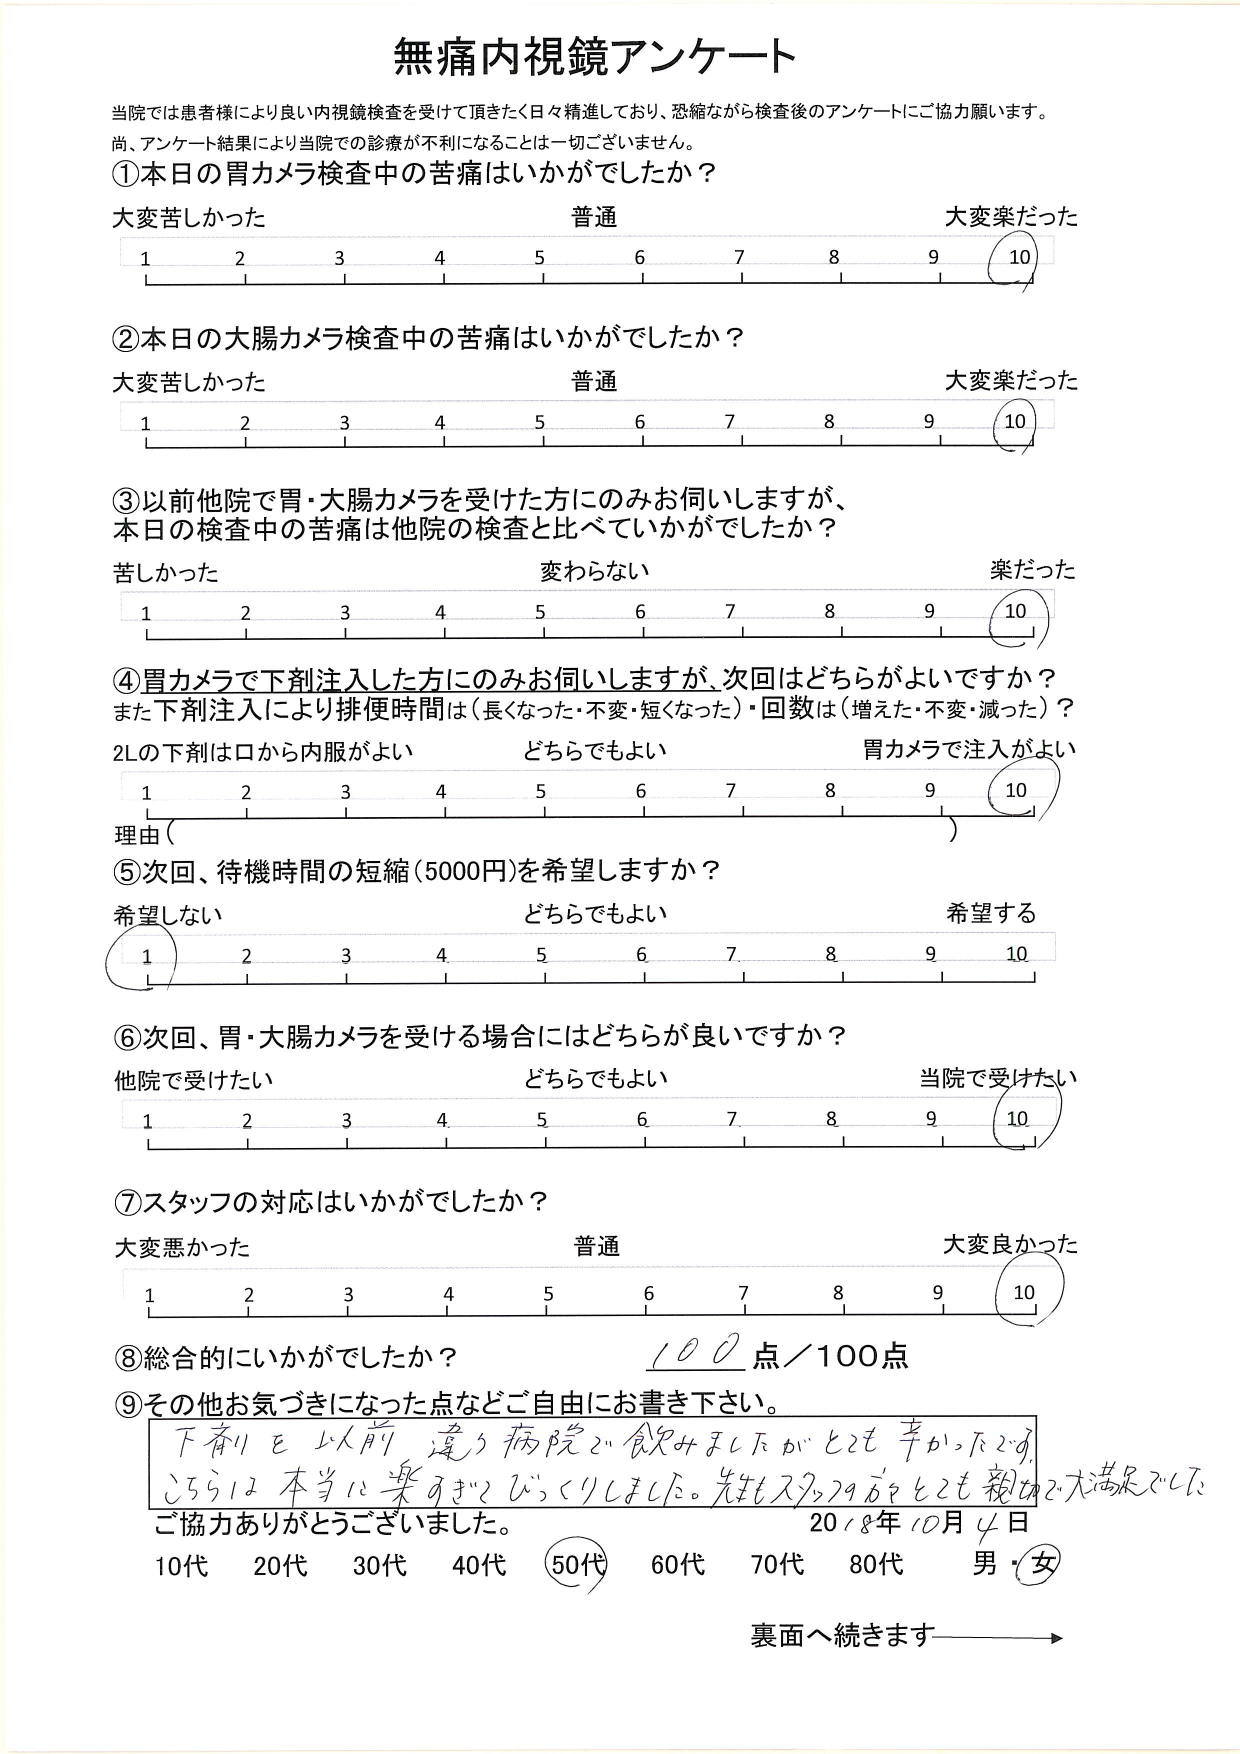 無痛内視鏡アンケート
当院では患者様により良い内視鏡検査を受けて頂きたく日々精進しており、恐縮ながら検査後のアンケートにご協力願います。
尚、アンケート結果により当院での診療が不利になることは一切ございません。
①本日の胃カメラ検査中の苦痛はいかがでしたか？
大変苦しかった 普通 大変楽だった
1 2 3 4 5 6 7 8 9 10
②本日の大腸カメラ検査中の苦痛はいかがでしたか？
大変苦しかった 普通 大変楽だった
1 2 3 4 5 6 7 8 9 10
③以前他院で胃・大腸カメラを受けた方にのみお伺いしますが、
本日の検査中の苦痛は他院の検査と比べていかがでしたか？
苦しかった 変わらない 楽だった
1 2 3 4 5 6 7 8 9 10
④胃カメラで下剤注入した方にのみお伺いしますが、次回はどちらがよいですか？
また下剤注入により排便時間は（長くなった・不変・短くなった）・回数は（増えた・不変・減った）？
2Lの下剤は口から内服がよい どちらでもよい 胃カメラで注入がよい
1 2 3 4 5 6 7 8 9 10
理由（ ）
⑤次回、待機時間の短縮（5000円）を希望しますか？
希望しない どちらでもよい 希望する
1 2 3 4 5 6 7 8 9 10
⑥次回、胃・大腸カメラを受ける場合にはどちらが良いですか？
他院で受けたい どちらでもよい 当院で受けたい
1 2 3 4 5 6 7 8 9 10
⑦スタッフの対応はいかがでしたか？
大変悪かった 普通 大変良かった
1 2 3 4 5 6 7 8 9 10
⑧総合的にいかがでしたか？ 100点／100点
⑨その他お気づきになった点などご自由にお書き下さい。
下剤を以前 違う病院で飲みましたがとても辛かったです。
こちらは本当に楽すぎてびっくりしました。先生もスタッフの方々とても親切で大満足でした
ご協力ありがとうございました。 2018年10月4日
10代 20代 30代 40代 50代 60代 70代 80代 男・女
裏面へ続きます